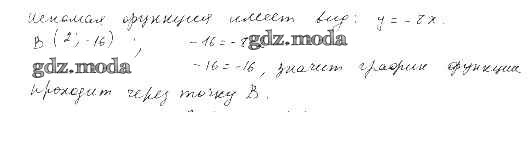 искомая функция имеет вид: y = -8x.
B (2; -16), -16 = -8 gdz.moda
gdz.moda -16 = -16, значит график функции
проходит через точку B.